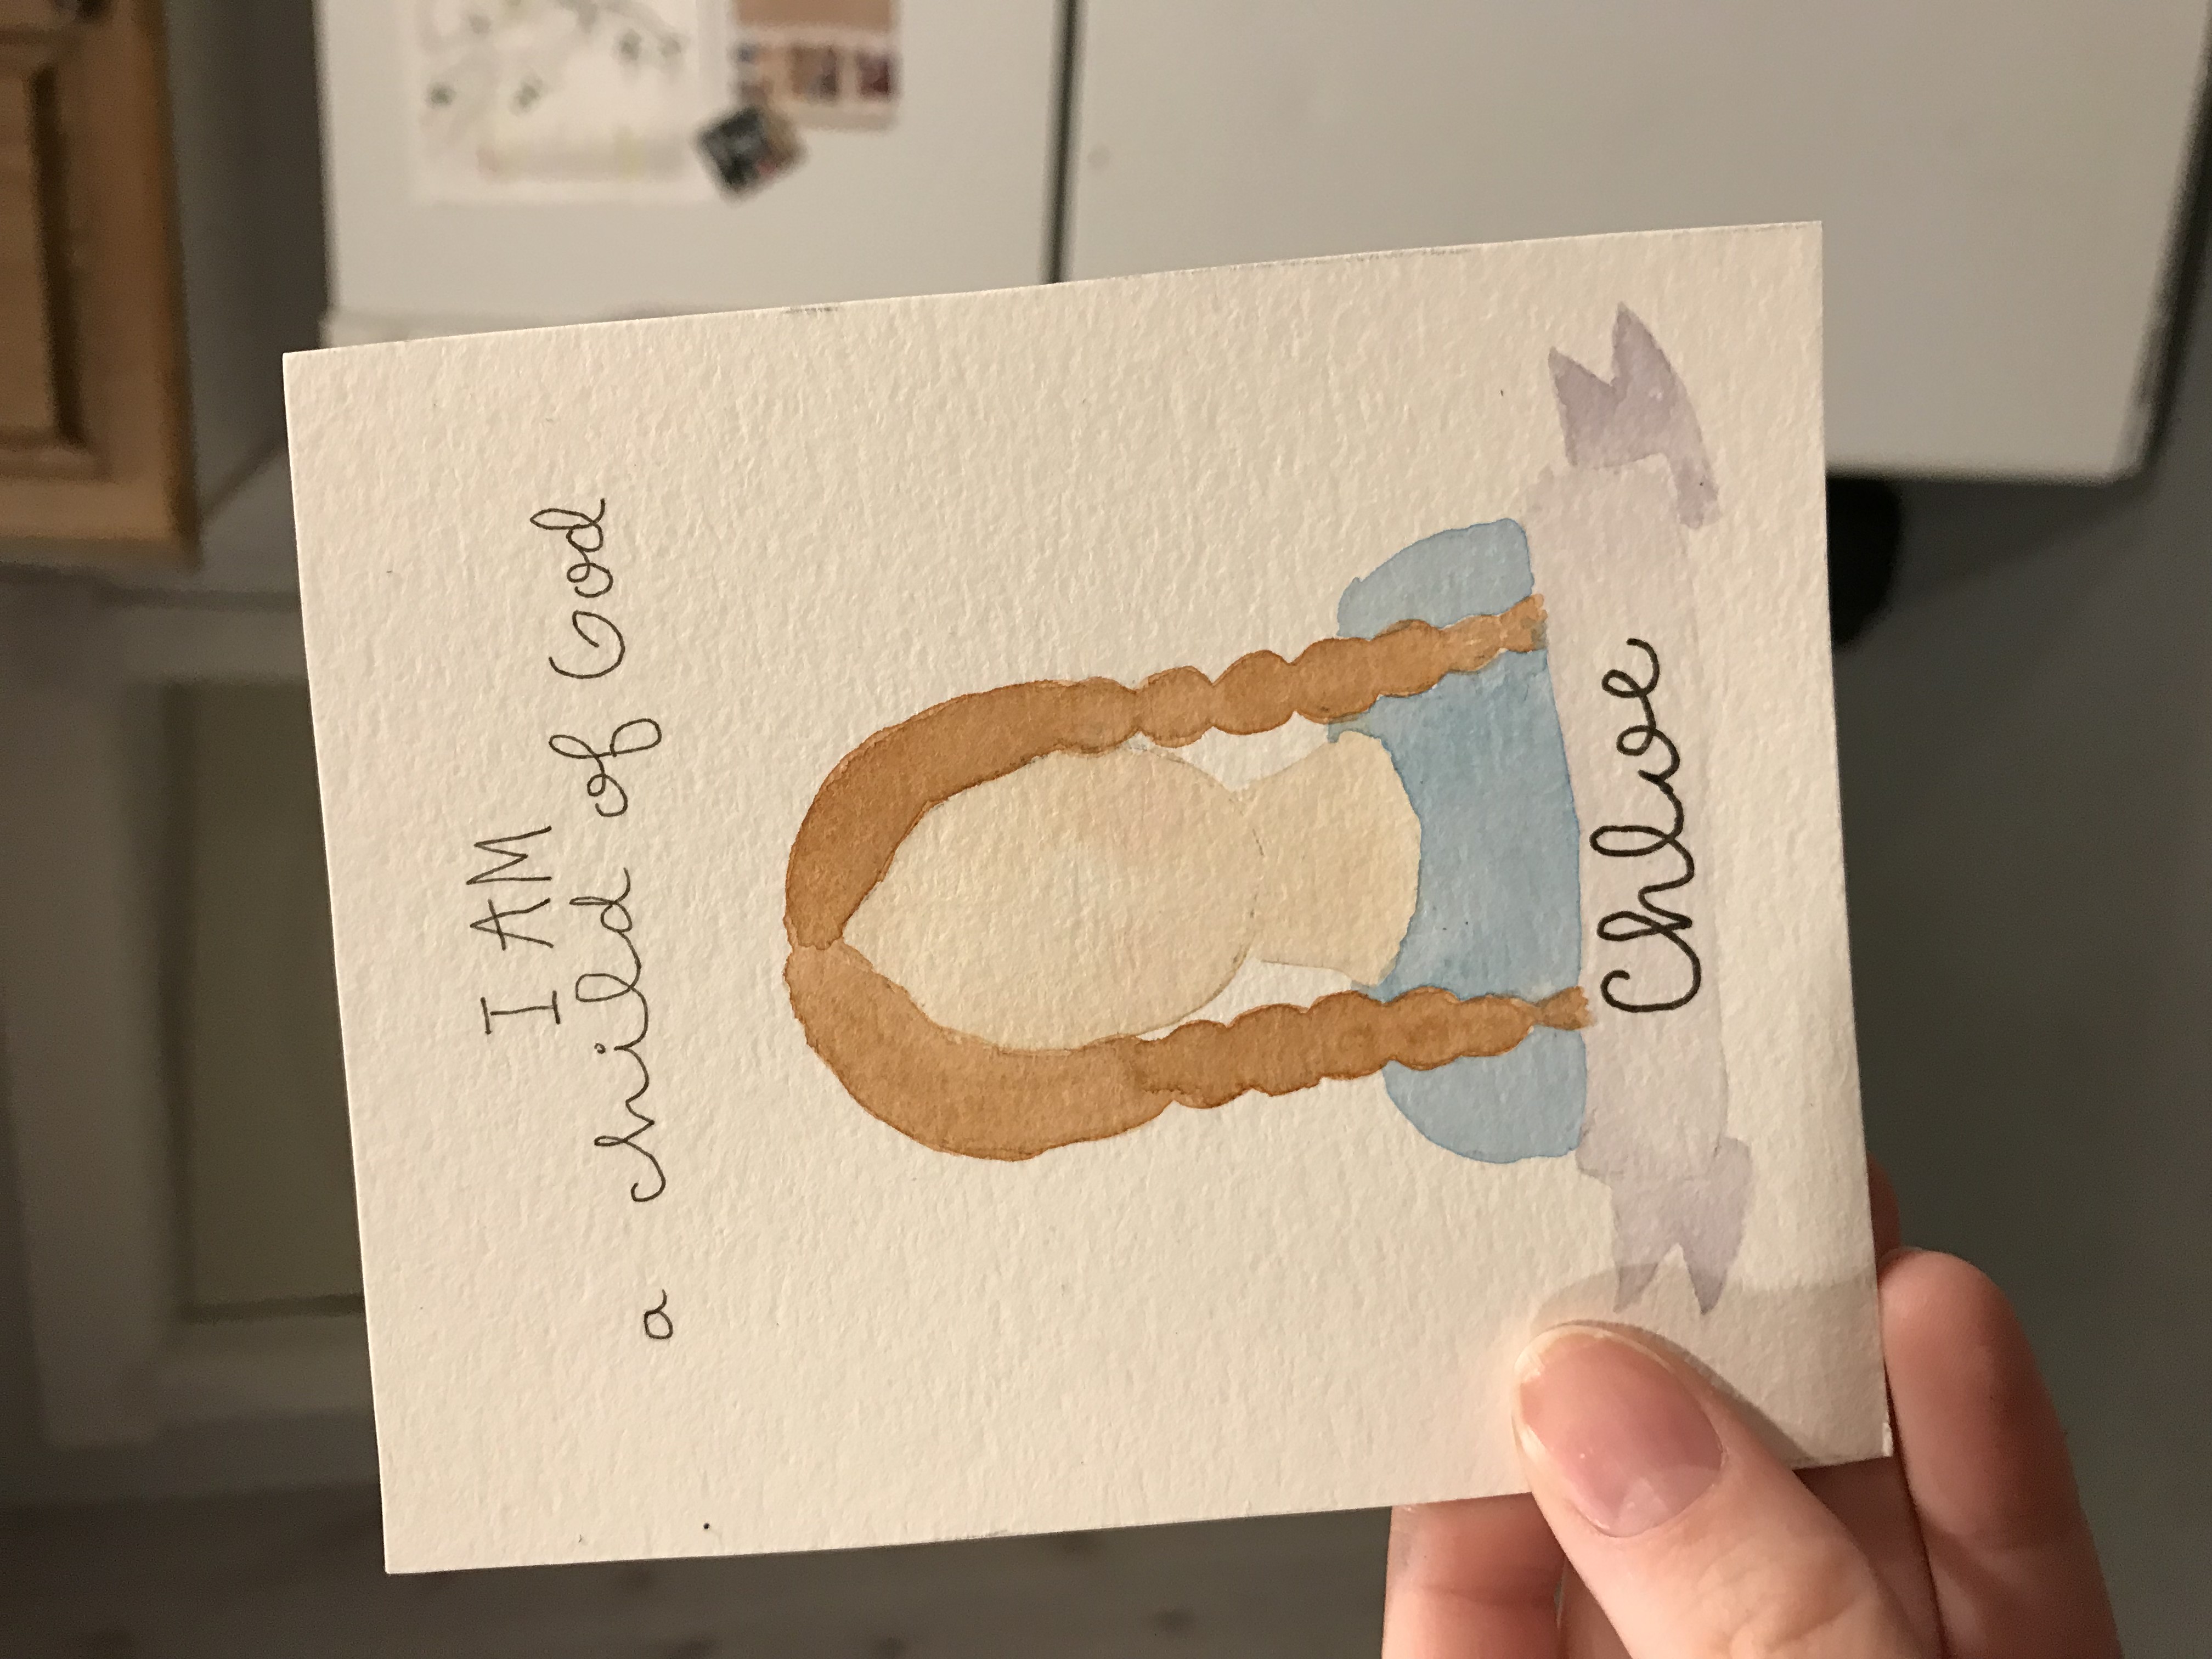 I AM
a child of God
Chloe